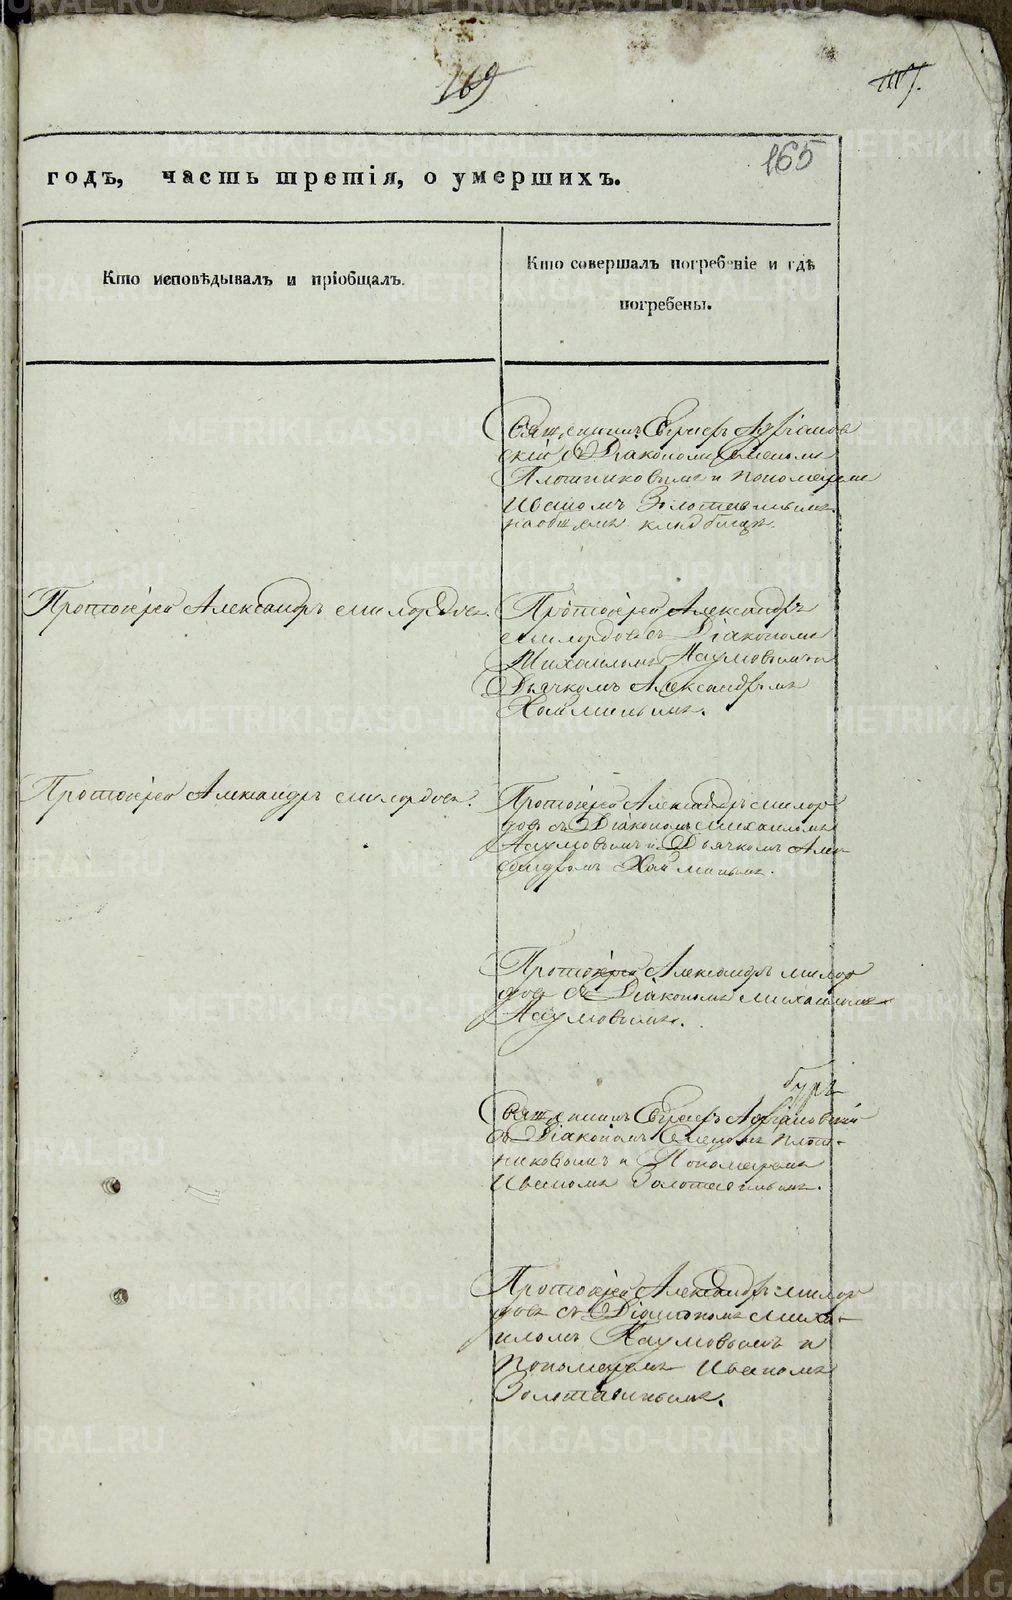 169
117.
165
годъ, часть третія, о умершихъ.
Кто исповѣдывалъ и пріобщалъ.
Кто совершалъ погребеніе и гдѣ
погребены.
Священникъ Сергѣй Адріанов
скій съ Діакономъ Семеномъ
Плотниковымъ и пономаремъ
Иваномъ Золотавинымъ
на общемъ кладбищѣ.
Протоіерей Александръ Милордовъ.
Протоіерей Александръ
Милордовъ съ Діакономъ
Михаиломъ Наумовымъ и
Дьячкомъ Александромъ
Хайминымъ.
Протоіерей Александръ Милордовъ.
Протоіерей Александръ Милор
довъ съ Діакономъ Михаиломъ
Наумовымъ и Дьячкомъ Алек
сандромъ Хайминымъ.
Протоіерей Александръ Милор
довъ съ Діакономъ Михаиломъ
Наумовымъ.
Священникъ Сергѣй Адріановскій
съ Діакономъ Семеномъ Плот-
никовымъ и Пономаремъ
Иваномъ Золотавинымъ.
Протоіерей Александръ Милор
довъ съ Діакономъ Миха-
иломъ Наумовымъ и
Пономаремъ Иваномъ
Золотавинымъ.
METRIKI.GASO-URAL.RU